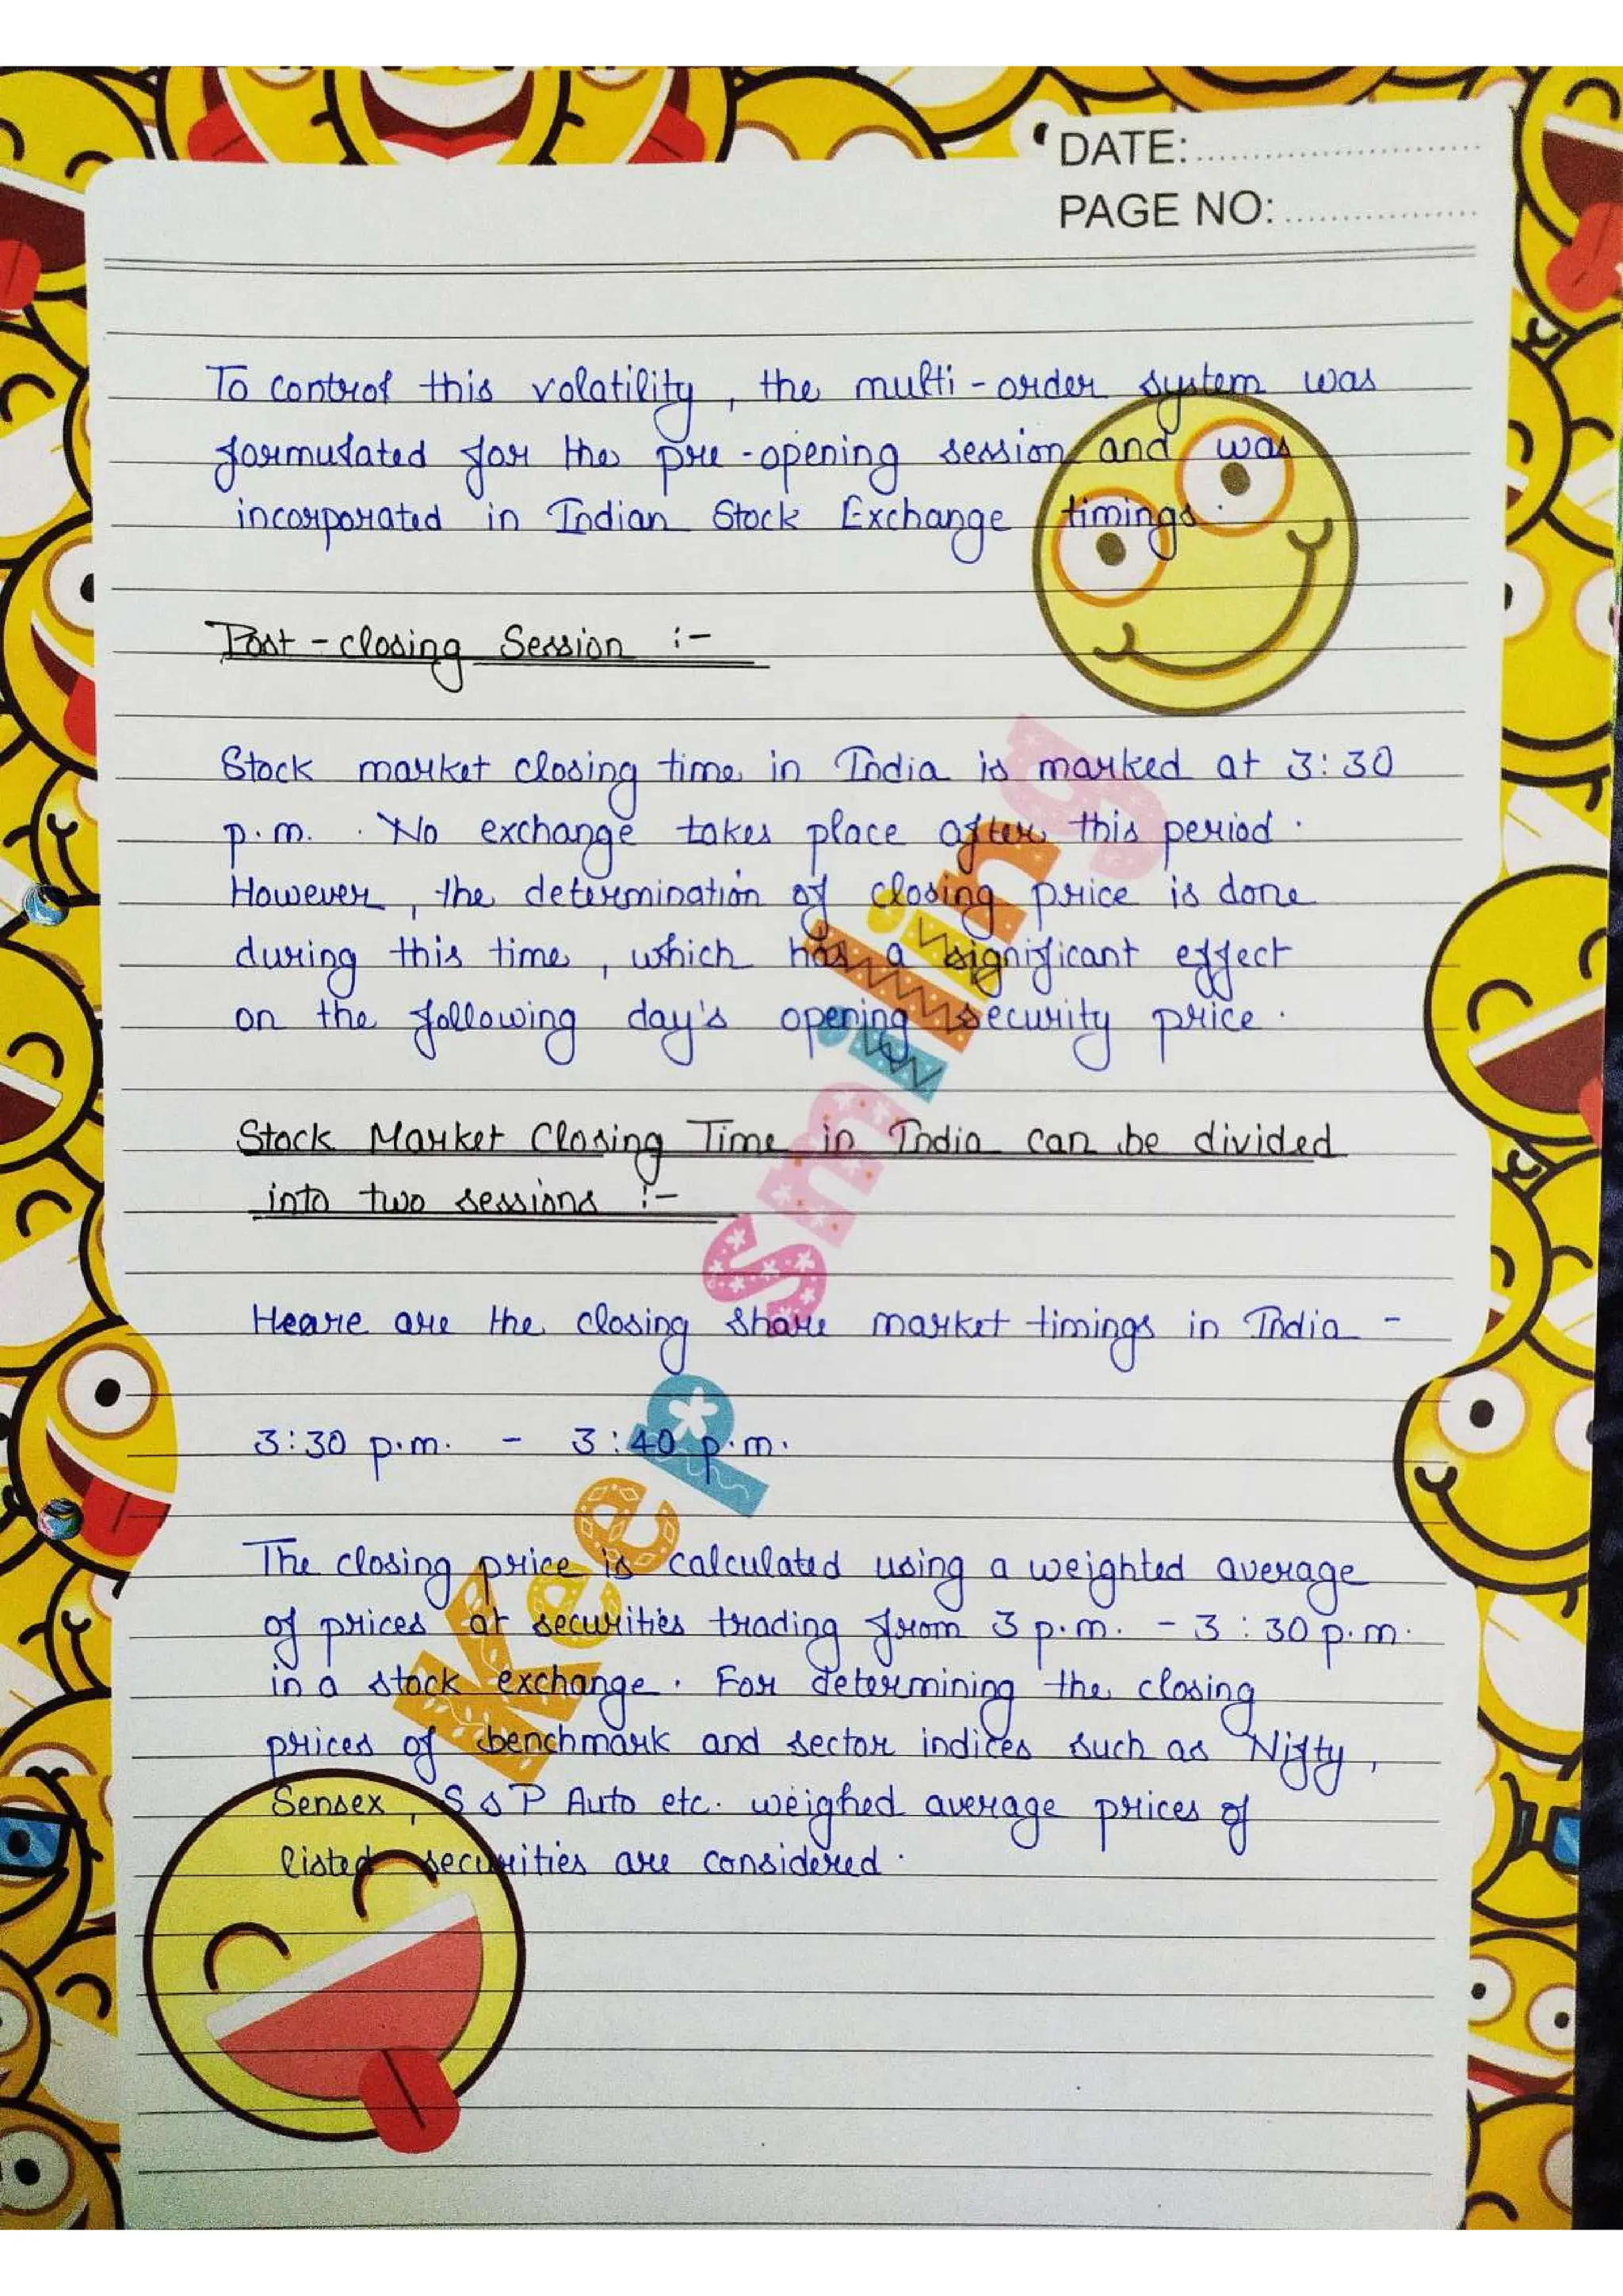 DATE:
PAGE NO:
To control this volatility, the multi-order system was
formulated for the pre-opening session and was
incorporated in Indian Stock Exchange timings.
Post-closing Session :-
Stock market closing time in India is marked at 3:30
p.m. . No exchange takes place after this period.
However, the determination of closing price is done
during this time, which has a significant effect
on the following day's opening security price.
Stock Market Closing Time in India can be divided
into two sessions :-
Heare are the closing share market timings in India -
3:30 p.m. - 3:40 p.m.
The closing price is calculated using a weighted average
of prices at securities trading from 3 p.m. - 3:30 p.m.
in a stock exchange. For determining the closing
prices of benchmark and sector indices such as Nifty,
Sensex, S & P Auto etc. weighed average prices of
listed securities are considered.
Keep smiling